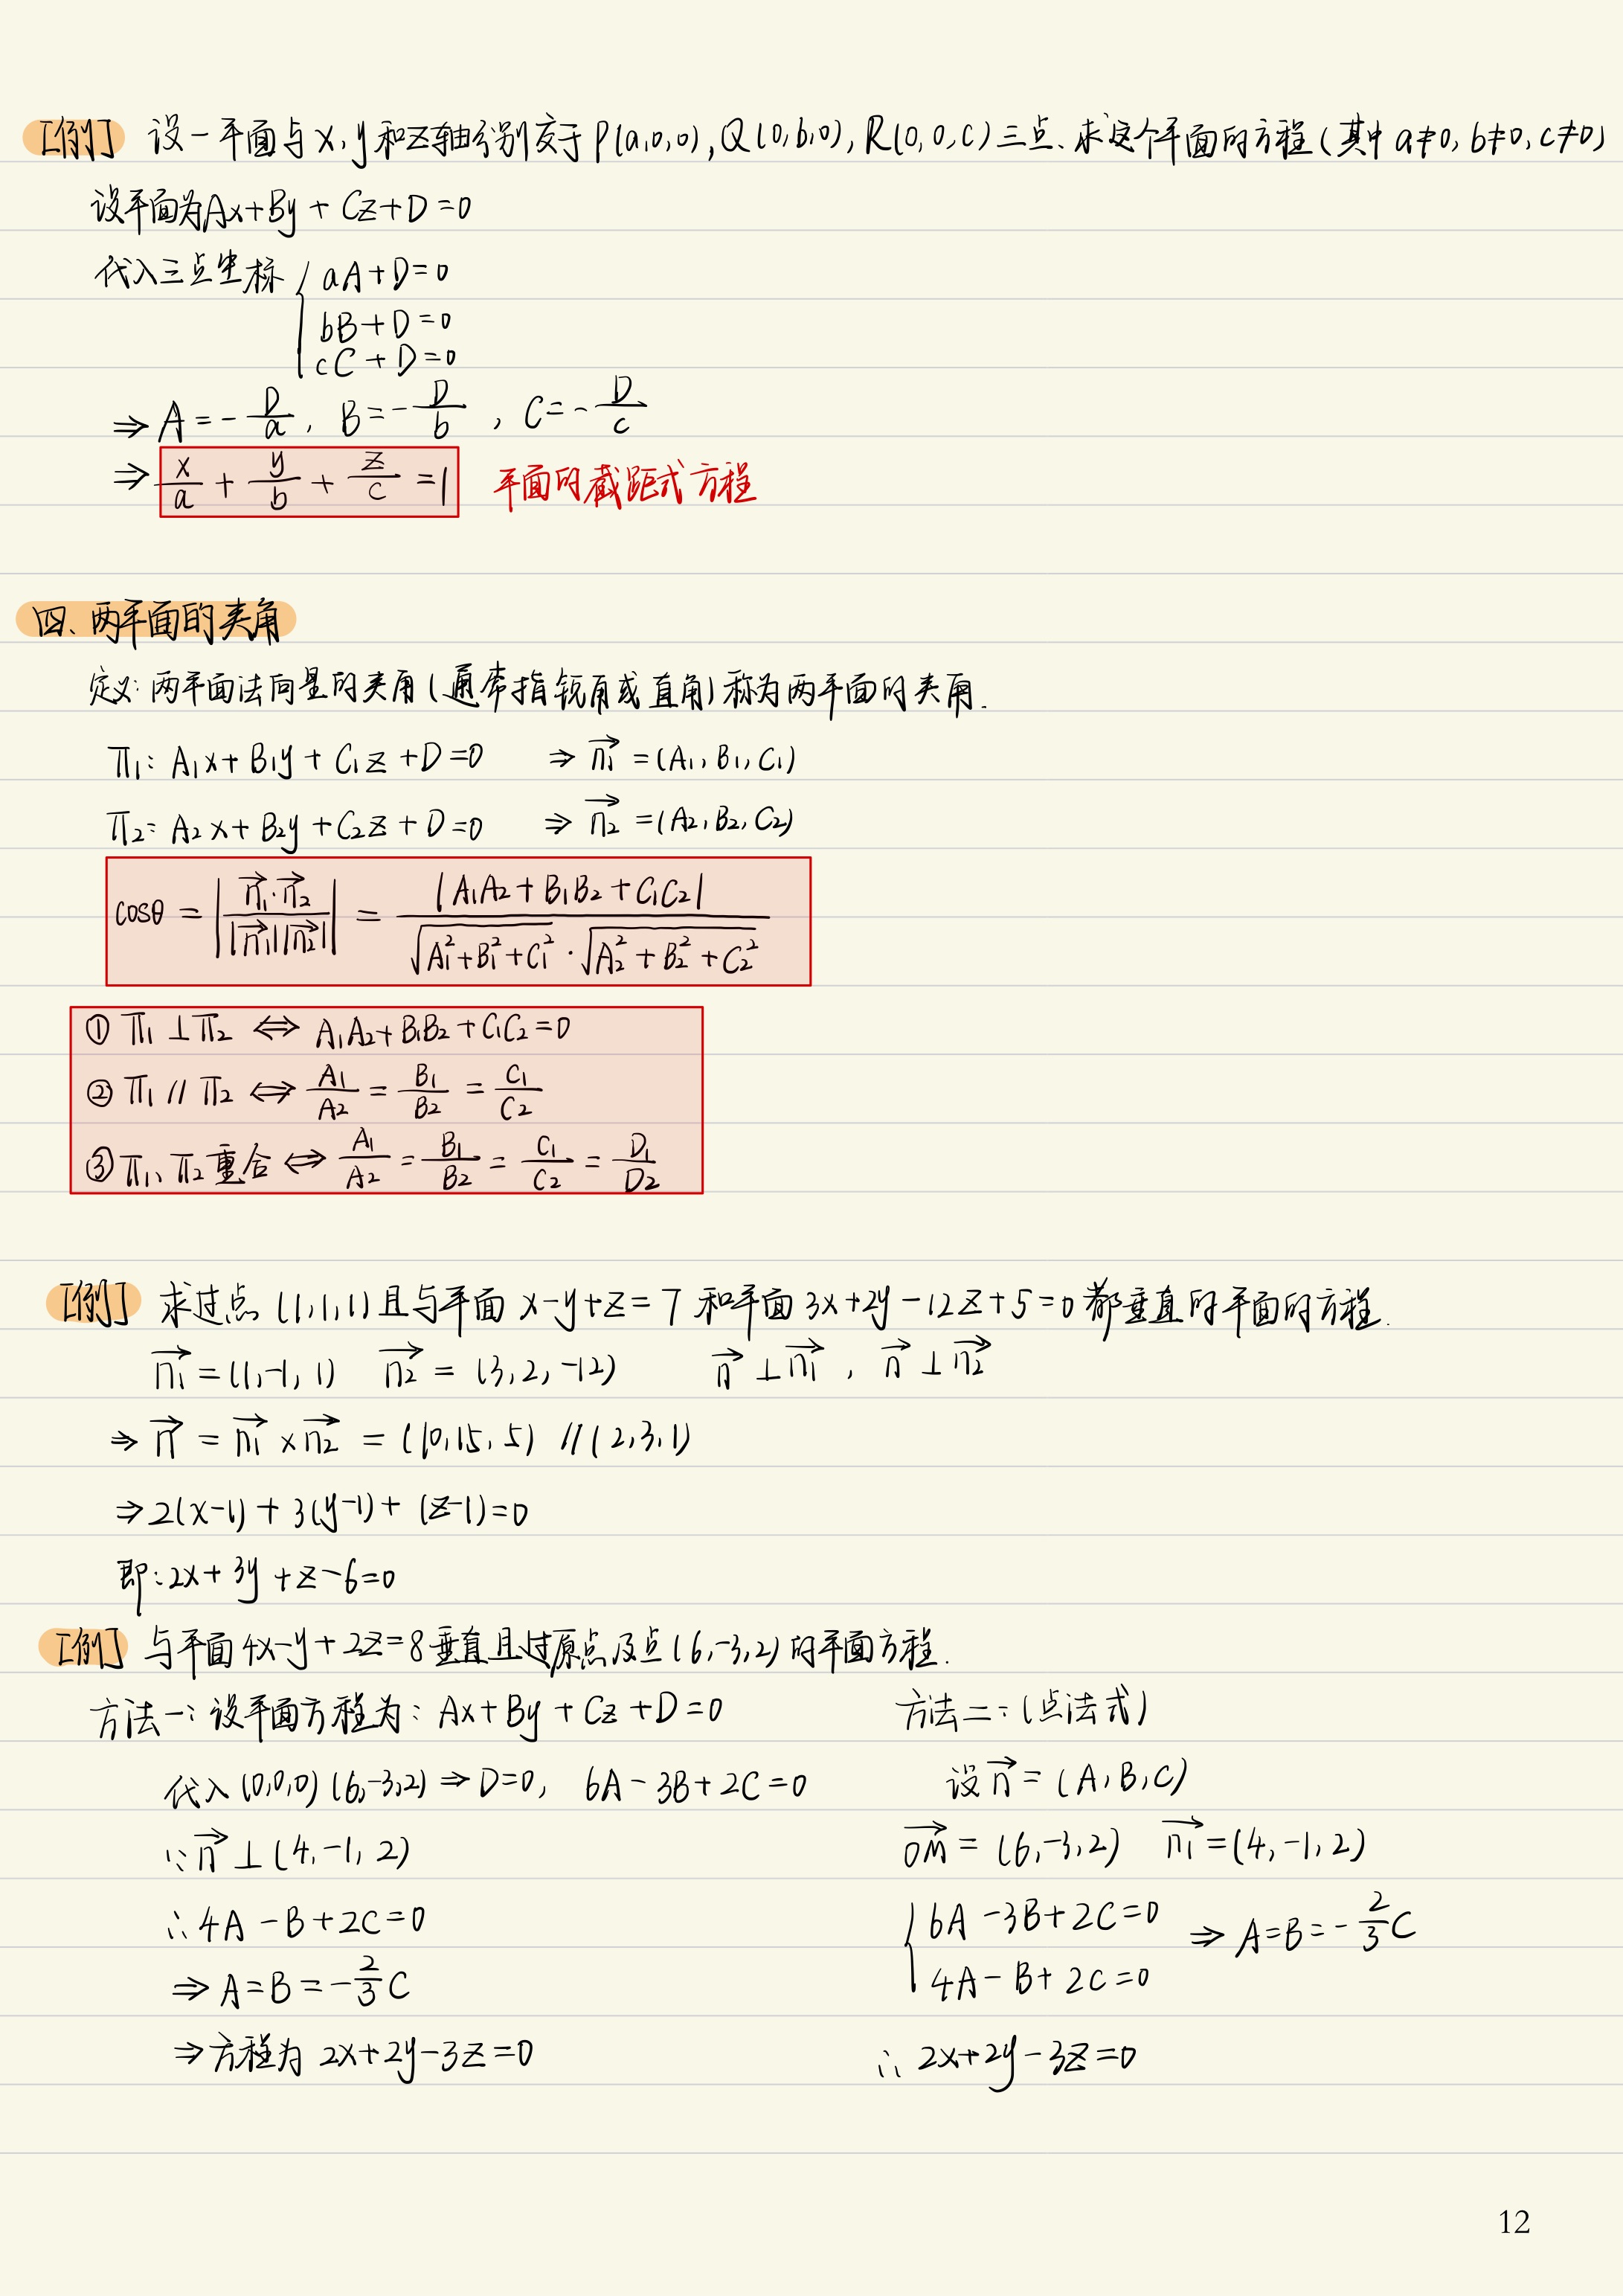 [例] 设一平面与x,y和z轴分别交于P(a,0,0),Q(0,b,0),R(0,0,c)三点、求这个平面的方程(其中a≠0,b≠0,c≠0)
设平面为Ax+By+Cz+D=0
代入三点坐标 { aA+D=0
bB+D=0
cC+D=0
⇒ A=-D/a, B=-D/b, C=-D/c
⇒ x/a + y/b + z/c =1 平面的截距式方程
四、两平面的夹角
定义:两平面法向量的夹角(通常指锐角或直角)称为两平面的夹角.
π₁: A₁x+B₁y+C₁z+D=0 ⇒ n₁→=(A₁,B₁,C₁)
π₂: A₂x+B₂y+C₂z+D=0 ⇒ n₂→=(A₂,B₂,C₂)
cosθ = |n₁→·n₂→ / |n₁→||n₂→|| = |A₁A₂+B₁B₂+C₁C₂| / √(A₁²+B₁²+C₁²)·√(A₂²+B₂²+C₂²)
① π₁⊥π₂ ⇔ A₁A₂+B₁B₂+C₁C₂=0
② π₁∥π₂ ⇔ A₁/A₂ = B₁/B₂ = C₁/C₂
③ π₁、π₂重合 ⇔ A₁/A₂ = B₁/B₂ = C₁/C₂ = D₁/D₂
[例] 求过点(1,1,1)且与平面x-y+z=7和平面3x+2y-12z+5=0都垂直的平面的方程.
n₁→=(1,-1,1) n₂→=(3,2,-12) n→⊥n₁→, n→⊥n₂→
⇒ n→=n₁→×n₂→=(10,15,5)∥(2,3,1)
⇒2(x-1)+3(y-1)+(z-1)=0
即:2x+3y+z-6=0
[例] 与平面4x-y+2z=8垂直且过原点及点(6,-3,2)的平面方程.
方法一:设平面方程为:Ax+By+Cz+D=0
代入(0,0,0)(6,-3,2)⇒D=0, 6A-3B+2C=0
∵n→⊥(4,-1,2)
∴4A-B+2C=0
⇒A=B=-2/3C
⇒方程为2x+2y-3z=0
方法二:(点法式)
设n→=(A,B,C)
OM→=(6,-3,2) n₁→=(4,-1,2)
{ 6A-3B+2C=0
4A-B+2C=0 ⇒A=B=-2/3C
∴ 2x+2y-3z=0
12